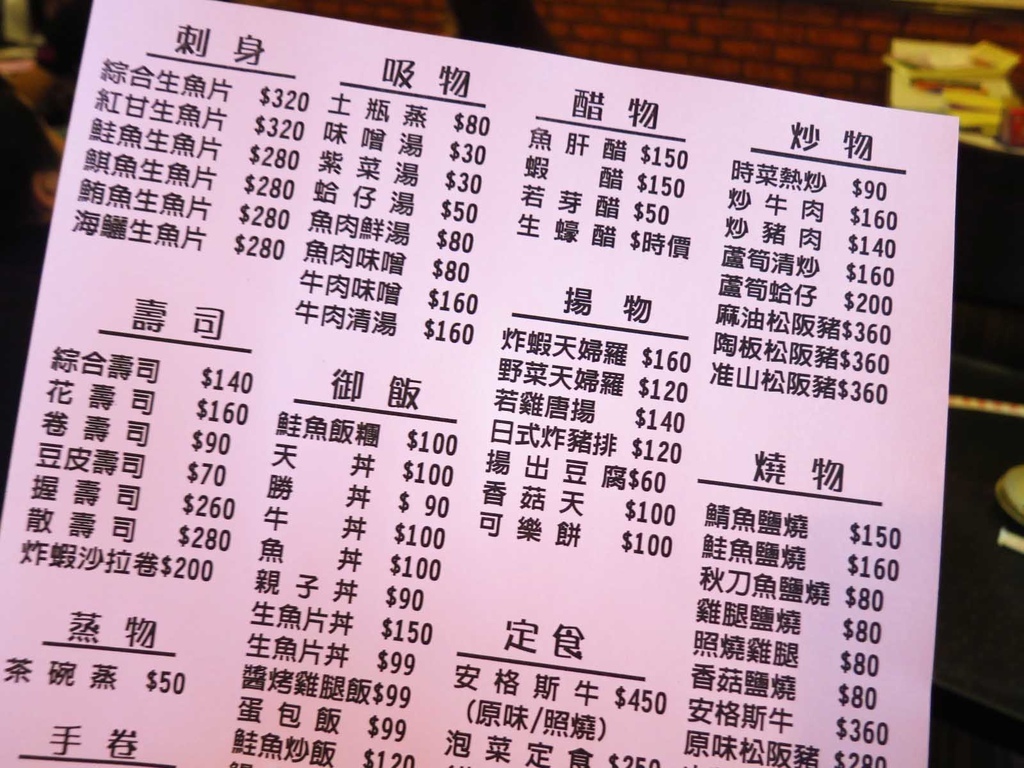 刺身
綜合生魚片 $320
紅甘生魚片 $320
鮭魚生魚片 $280
鯕魚生魚片 $280
鮪魚生魚片 $280
海鱺生魚片 $280
壽司
綜合壽司 $140
花壽司 $160
卷壽司 $90
豆皮壽司 $70
握壽司 $260
散壽司 $280
炸蝦沙拉卷$200
蒸物
茶碗蒸 $50
手卷
吸物
土瓶蒸 $80
味噌湯 $30
紫菜湯 $30
蛤仔湯 $50
魚肉鮮湯 $80
魚肉味噌 $80
牛肉味噌 $160
牛肉清湯 $160
御飯
鮭魚飯糰 $100
天丼 $100
勝丼 $ 90
牛丼 $100
魚丼 $100
親子丼 $90
生魚片丼 $150
生魚片丼 $99
醬烤雞腿飯$99
蛋包飯 $99
鮭魚炒飯 $120
醋物
魚肝醋 $150
蝦醋 $150
若芽醋 $50
生蠔醋 $時價
揚物
炸蝦天婦羅 $160
野菜天婦羅 $120
若雞唐揚 $140
日式炸豬排 $120
揚出豆腐$60
香菇天 $100
可樂餅 $100
定食
安格斯牛 $450
(原味/照燒)
泡菜定食 $250
炒物
時菜熱炒 $90
炒牛肉 $160
炒豬肉 $140
蘆筍清炒 $160
蘆筍蛤仔 $200
麻油松阪豬$360
陶板松阪豬$360
准山松阪豬$360
燒物
鯖魚鹽燒 $150
鮭魚鹽燒 $160
秋刀魚鹽燒 $80
雞腿鹽燒 $80
照燒雞腿 $80
香菇鹽燒 $80
安格斯牛 $360
原味松阪豬 $280